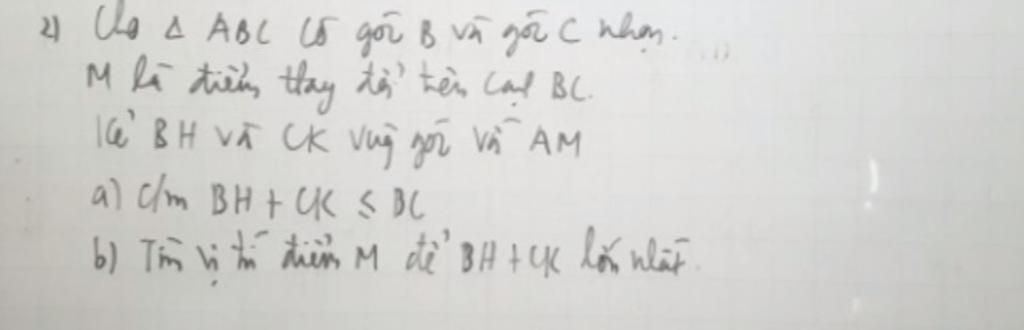 2) Cho Δ ABC có góc B và góc C nhọn.
M là điểm thay đổi trên cạnh BC.
Kẻ BH và CK vuông góc với AM
a) C/m BH + CK ≤ BC
b) Tìm vị trí điểm M để BH + CK lớn nhất.